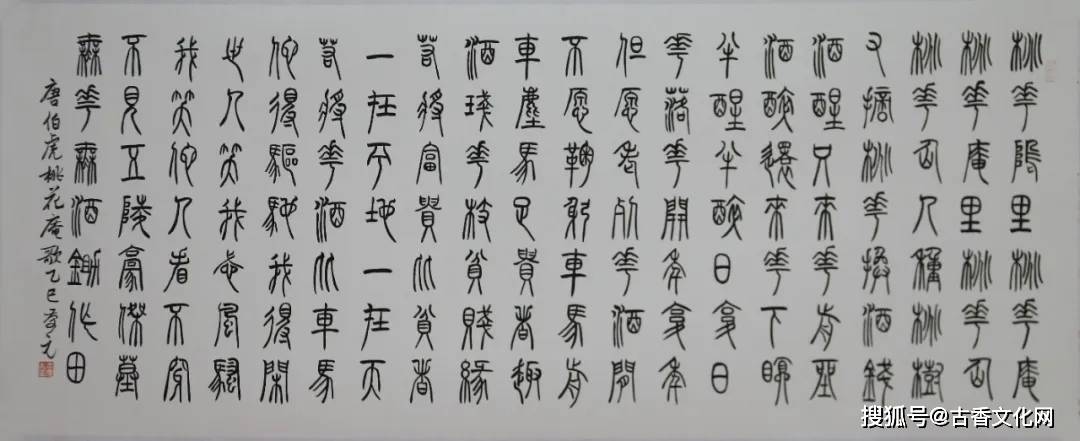 桃花隖里桃花庵
桃花庵里桃花仙
桃花仙人種桃樹
又摘桃花換酒錢
酒醒只來花前坐
酒醉還來花下眠
半醒半醉日复日
花落花開年复年
但愿老死花酒間
不愿鞠躬車馬前
車塵馬足貴者趣
酒琖花枝貧賤緣
若將富貴比貧者
一在平地一在天
若將花酒比車馬
他得驅馳我得閑
世人笑我忒風騷
我笑他人看不穿
不見五陵豪傑墓
無花無酒鋤作田
唐伯虎桃花庵歌乙巳元
搜狐号@古香文化网